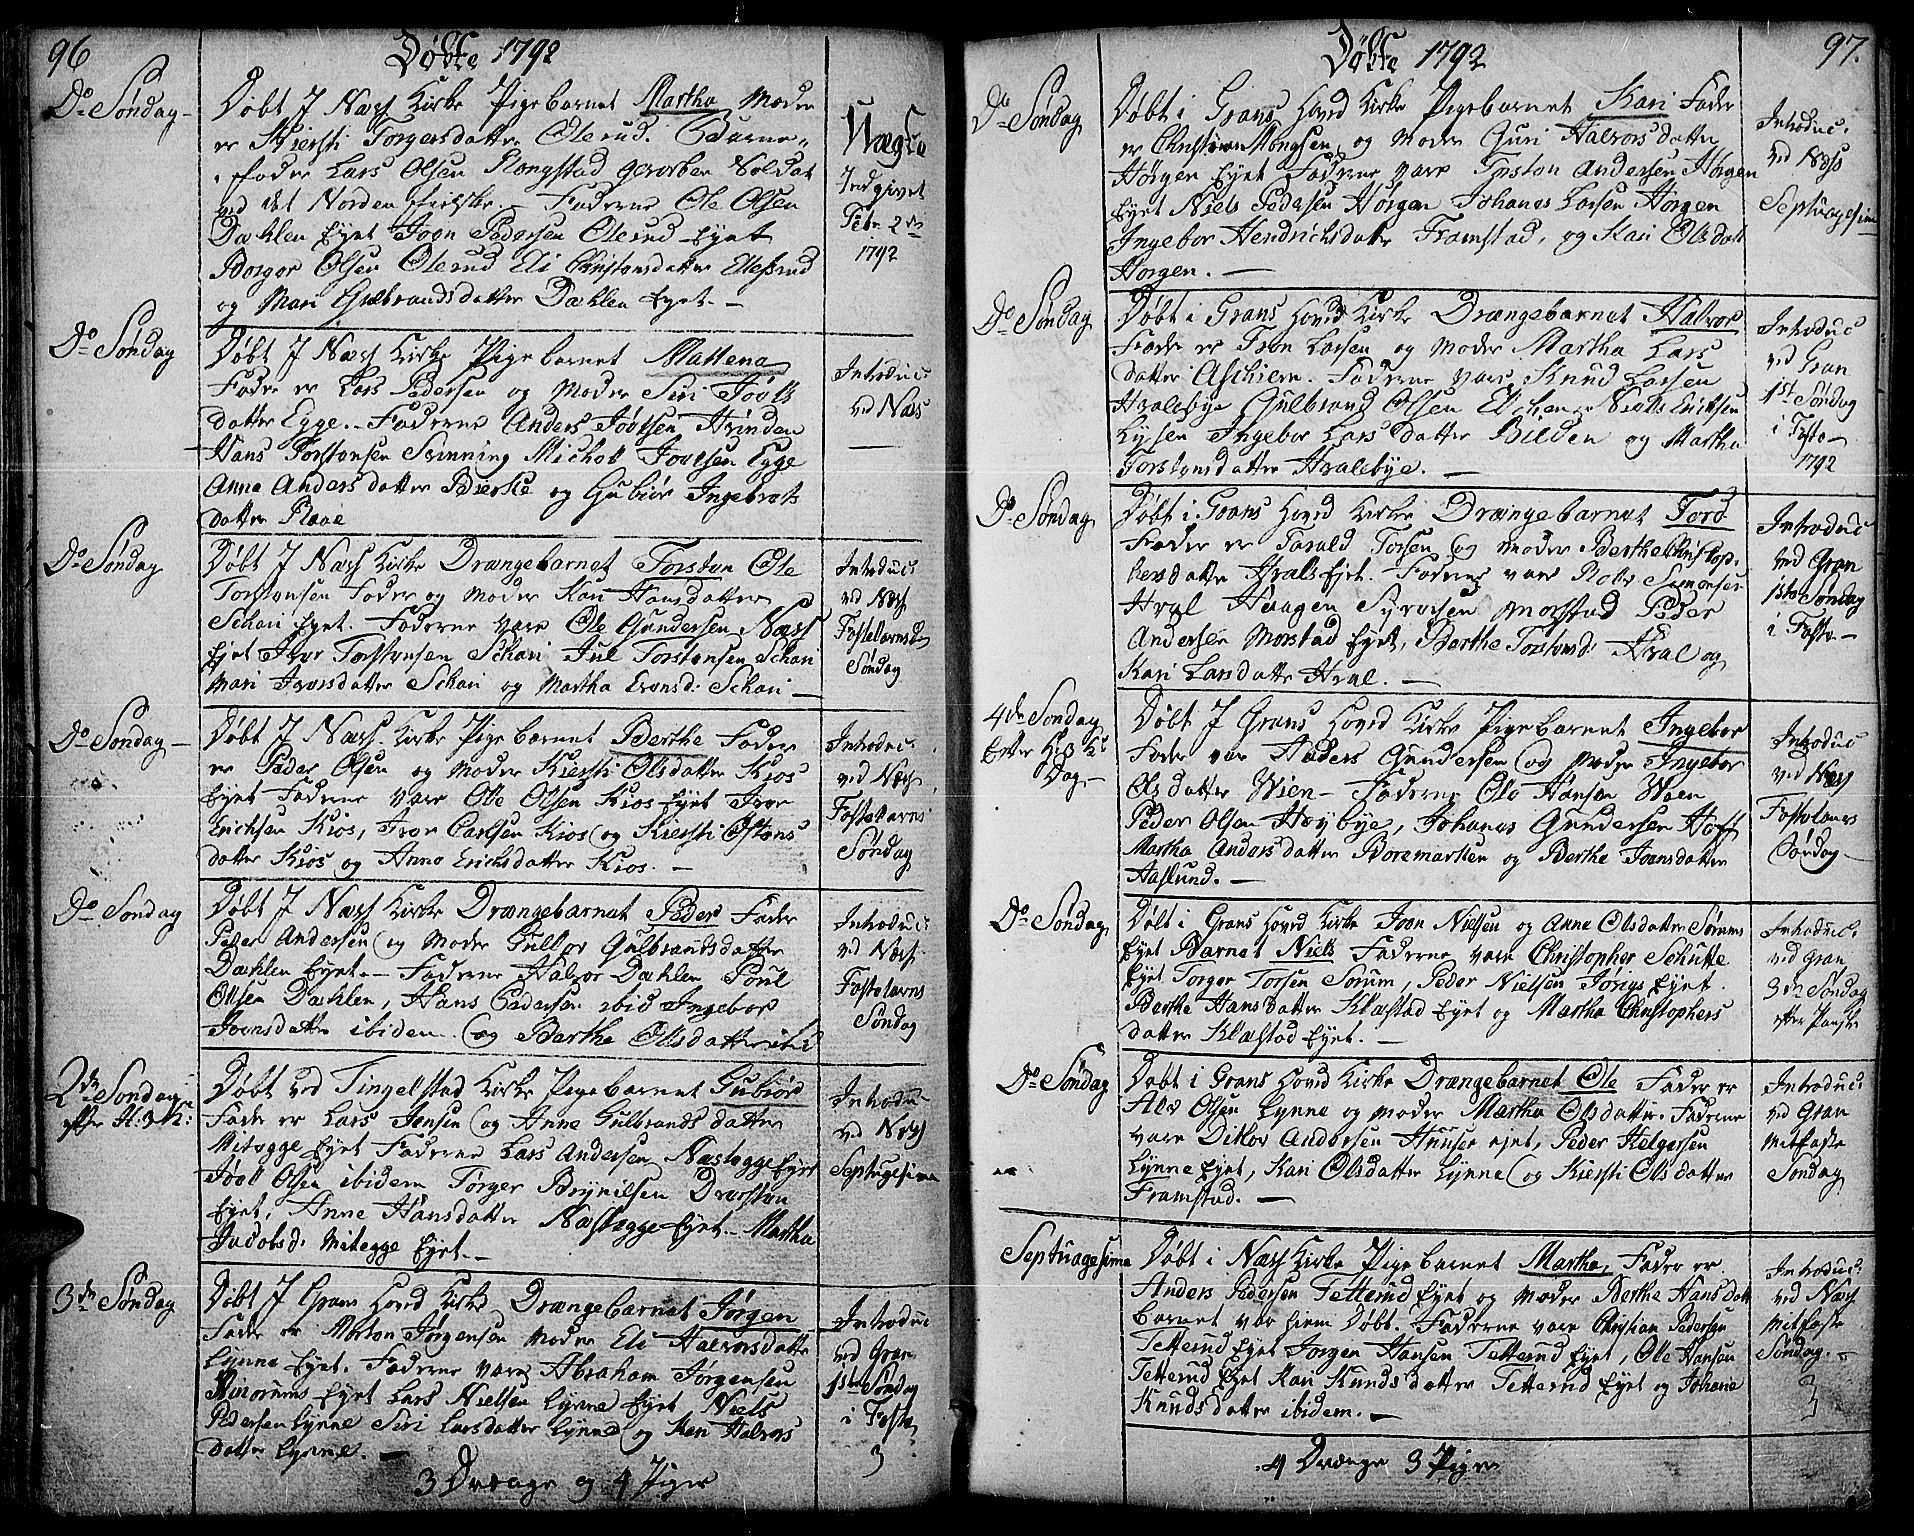 96
Døbte 1792
Do Søndag
Døbt I Næss Kirke Pigebarnet Martha Moder
er Kiersti Torgersdatter Olerud. Barne-
fader Lars Olsen Rongstad gevorben Soldat
ved det Nordenfielske. Fadderne Ole Olsen
Dæhlen Eyet Joen Pedersen Olerud Eyet
Borgor Olsen Olerud Eli Christensdatter
og Mari Gulbrandsdatter Dæhlen Eyet. —
Uægte
Indgivet
Febr. 2de
1792
Do Søndag
Døbt I Næss Kirke Pigebarnet Mattena
Fader er Lars Pedersen og Moder Siri Joels
datter Egge. Fadderne Anders Joelsen Hvinden
Hans Torstensen Svinning Michel Joelsen Egge
Anne Andersdatter Bierke og Gubiør Ingebrets
datter
Introduc:
ved Næss
Do Søndag
Døbt I Næss Kirke Drængebarnet Torsten Ole
Torstensen Fader og Moder Kari Hansdatter
Schari Eyet. Fadderne vare Ole Gundersen Næss
Eyet Iver Torstensen Schari Jul Torstensen Schari
Mari Iversdatter Schari og Martha Evensd: Schari —
Introduc:
ved Næss
Fastelavns
Søndag
Do Søndag —
Døbt I Næss Kirke Pigebarnet Berthe Fader
er Peder Olsen og Moder Kiersti Olsdatter Kios
Eyet Fadderne vare Ole Olsen Kios Eyet Iver
Erichsen Kios, Iver Carlsen Kios og Kiersti Østens
datter Kios og Anne Erichsdatter Kios. —
Introduc:
ved Næss
Fastelavns
Søndag
Do Søndag
Døbt I Næss Kirke Drængebarnet Peder Fader
Peder Andersen og Moder Gullov Gulbrandsdatter
Dæhlen Eyet. — Fadderne Halvor Dæhlen Poul
Olsen Dæhlen, Hans Pedersen ibid Ingebor
Joensdatter ibidem og Berthe Olsdatter ibid
Introduc:
ved Næss
Fastelavns
Søndag
2de Søndag
efter H: 3 K:
Døbt ved Tingelstad Kirke Pigebarnet Gubiør
Fader er Lars Jensen og Anne Gulbrandsdatter
Mitegge Eyet Fadderne Lars Andersen Næstegge Eyet
Joel Olsen ibidem Torger Brynilsen
Eyet, Anne Hansdatter Næstegge Eyet. Martha
Jacobsd: Mitegge Eyet. —
Introdu:
ved Næss
Septugesima
3de Søndag
Døbt I Grans Hoved Kirke Drængebarnet Jørgen
Fader er Morten Jørgensen Moder Eli Halvorsdatter
Lynne Eyet. Fadderne vare Abraham Jørgensen
Eyet Lars Nielsen Lynne Eyet Niels
Pedersen Lynne Siri Larsdatter Lynne og Kari Halvors
datter Lynne. —
Introduc
ved Gran
1ste Søndag
i Faste
3
3 Drænge og 4 Piger
97.
Døbte 1792
Do Søndag
Døbt i Grans Hoved Kirke Pigebarnet Kari Fader
er Christian Mongsen og Moder Guri Halvorsdatter
Horgen Eyet Fadderne vare Torsten Andersen Horgen
Eyet Niels Pedersen Horgen Johanes Larsen Horgen
Ingebor Hendrichsdatter Framstad, og Kari Olsdatt
Horgen. —
Introduc:
ved Næss
Septuagesim
Do Søndag
Døbt i Grans Hoved Kirke Drængebarnet Halvor
Fader er Tron Larsen og Moder Martha Lars
datter Aschiem. Fadderne vare Knud Larsen
Hvalebye Gulbrand Olsen Niels Erichsen
Lysen Ingebor Larsdatter Bilden og Martha
Torstensdatter Hvalebye. —
Introduc
ved Gran
1st Søndag
i Faste
1792
Do Søndag
Døbt i Grans Hoved Kirke Drængebarnet Tord
Fader er Tarald Torsen og Moder Berthe Christop-
hersdatter Hvals Eyet. Fadderne vare Simensen
Hval Haagen Syversen Morstad Peder
Andersen Morstad Eyet, Berthe Torstensd: Hval og
Kari Larsdatter Hval. —
Introduc
ved Gran
1ste Søndag
i Faste —
4de Søndag
Efter Hel: 3 K:
Dag —
Døbt I Grans Hoved Kirke Pigebarnet Ingebor
Fader var Anders Gundersen og Moder Ingebor
Olsdatter Wien — Fadderne Ole Hansen Woen
Peder Olsen Høybye, Johanes Gundersen Hoff
Martha Andersdatter Boremarken og Berthe Joensdatter
Aaslund. —
Introduc
ved Næss
Fastelavns
Søndag —
Do Søndag
Døbt i Grans Hoved Kirke Joen Nielsen og Anne Olsdatter Sørums
Eyet Barnet Niels Fadderne vare Christopher Schutte
Eyet Torger Torsen Sørum, Peder Nielsen Eyet.
Berthe Hansdatter Klæstad Eyet og Martha Christophers
datter Klæstad Eyet. —
Introduc:
ved Gran
3de Søndag
efter Paaske
Do Søndag
Døbt i Grans Hoved Kirke Drængebarnet Ole Fader er
Alv Olsen Lynne og Moder Martha Olsdatter. Fadderne
vare Ditlov Andersen Eyet, Peder Helgersen
Lynne Eyet, Kari Olsdatter Lynne og Kiersti Olsdatter
Framstad. —
Introduc:
ved Gran
Mitfaste
Søndag
Septuagesima
Døbt i Næss Kirke Pigebarnet Martha, Fader er
Anders Pedersen Tetterud Eyet og Moder Berthe Hansdatt
Barnet var hiem Døbt. Fadderne vare Christian Pedersen
Tetterud Eyet Jørgen Hansen Tetterud Eyet, Ole Hansen
Tetterud Eyet Kari Knudsdatter Tetterud Eyet og Johane
Knudsdatter ibidem. —
Introduc:
ved Næss
Mitfaste
Søndag. —
3
4 Drænge 3 Piger